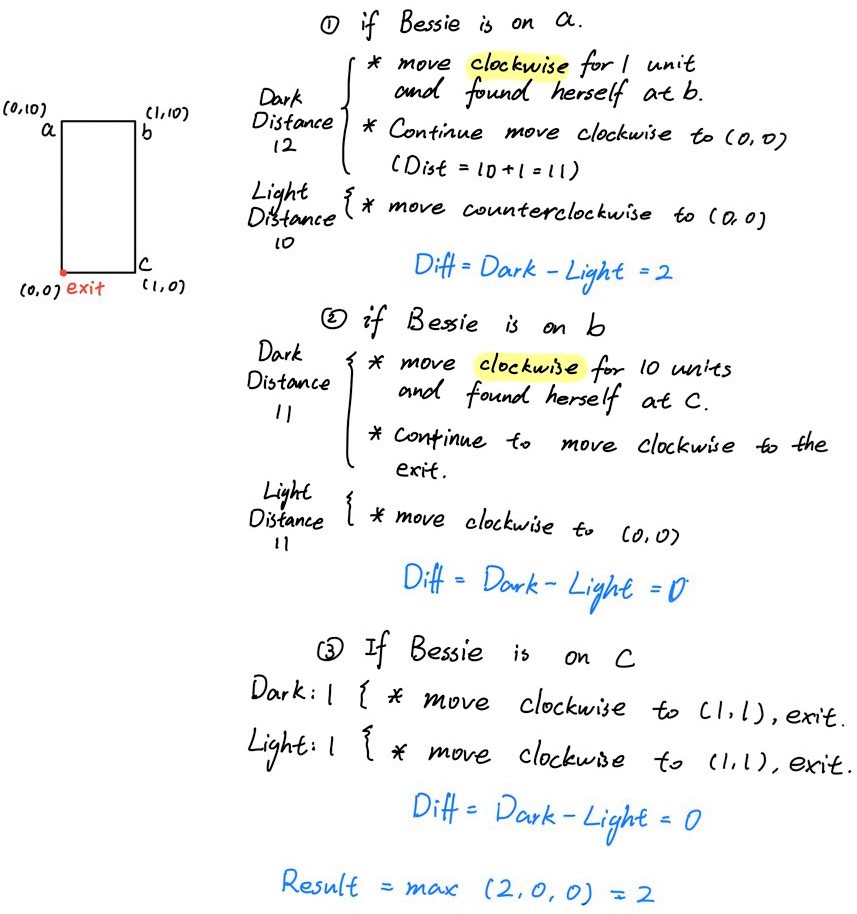 ① if Bessie is on a.
* move clockwise for 1 unit
and found herself at b.
Dark
Distance
12
* Continue move clockwise to (0,0)
(Dist = 10+1=11)
Light
Distance
10
* move counterclockwise to (0,0)
Diff = Dark - Light = 2
(0,10)
(1,10)
a
b
c
(0,0) exit
(1,0)
② if Bessie is on b
Dark
Distance
11
* move clockwise for 10 units
and found herself at C.
* Continue to move clockwise to the
exit.
Light
Distance
11
* move clockwise to (0,0)
Diff = Dark - Light = 0
③ If Bessie is on C
Dark: 1 { * move clockwise to (1,1), exit.
Light: 1 { * move clockwise to (1,1), exit.
Diff = Dark - Light = 0
Result = max (2,0,0) = 2